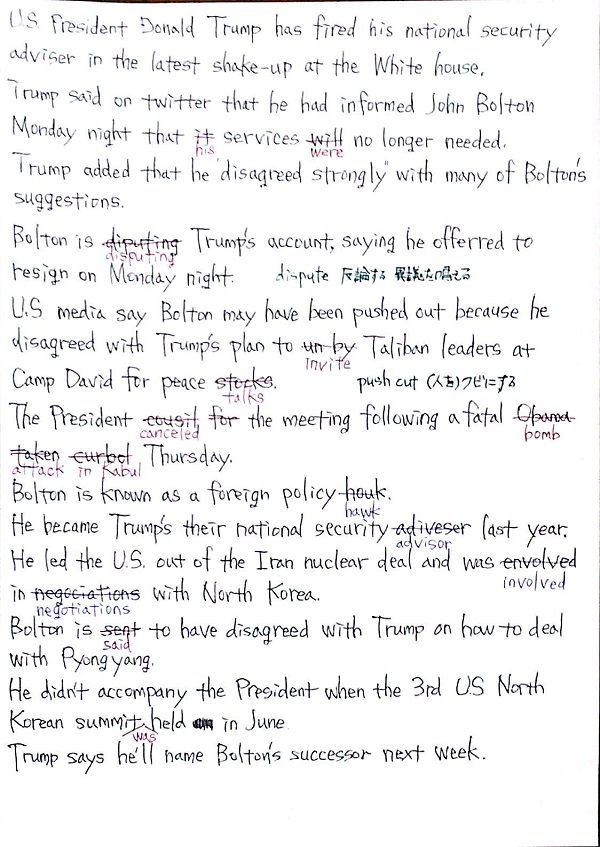 U.S. President Donald Trump has fired his national security
adviser in the latest shake-up at the White house.
Trump said on twitter that he had informed John Bolton
Monday night that it services will no longer needed.
his were
Trump added that he "disagreed strongly" with many of Bolton's
suggestions.
Bolton is diputing Trump's account, saying he offerred to
disputing
resign on Monday night. dispute 反論する 異議を唱える
U.S media say Bolton may have been pushed out because he
disagreed with Trump's plan to un by Taliban leaders at
invite
Camp David for peace stocks. push out (人を)クビにする
talks
The President cousil for the meeting following a fatal Obama
canceled bomb
taken curbot Thursday.
attack in Kabul
Bolton is known as a foreign policy houk.
hawk
He became Trump's their national security adiveser last year.
advisor
He led the U.S. out of the Iran nuclear deal and was envolved
involved
in negociations with North Korea.
negotiations
Bolton is sent to have disagreed with Trump on how to deal
said
with Pyongyang.
He didn't accompany the President when the 3rd US North
Korean summit held in June
was
Trump says he'll name Bolton's successor next week.